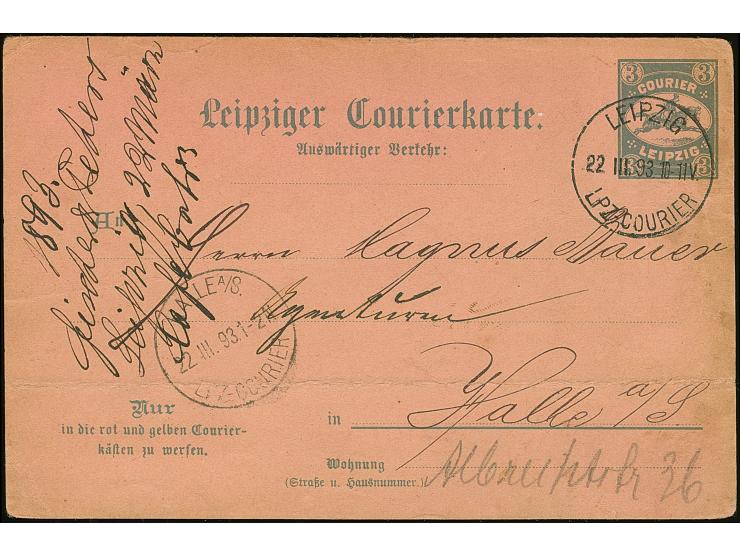 3 3
COURIER
LEIPZIG
3 3
Leipziger Courierkarte.
Auswärtiger Verkehr:
LEIPZIG
22 III. 93 10-11V.
LPZ. COURIER
An
Herrn Magnus Bauer
Agenturen
in Halle a/S
Wohnung
(Straße u. Hausnummer.) Albrechtstr 36.
Nur
in die rot und gelben Courier-
kästen zu werfen.
HALLE A/S.
22. III. 93. 1-2
LPZ-COURIER
Leipzig, 22 März
1893.